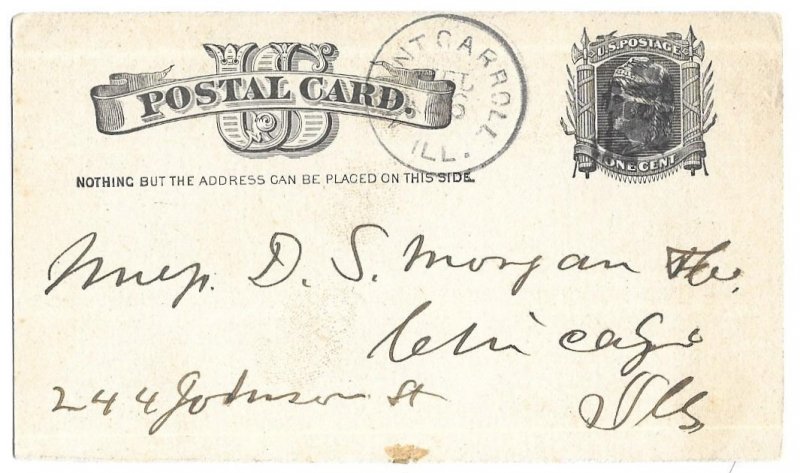 US
POSTAL CARD.
MOUNT CARROLL
ILL.
U.S. POSTAGE
ONE CENT
NOTHING BUT THE ADDRESS CAN BE PLACED ON THIS SIDE.
D. S. Morgan & Co.
Chicago
244 Johnson St Ills